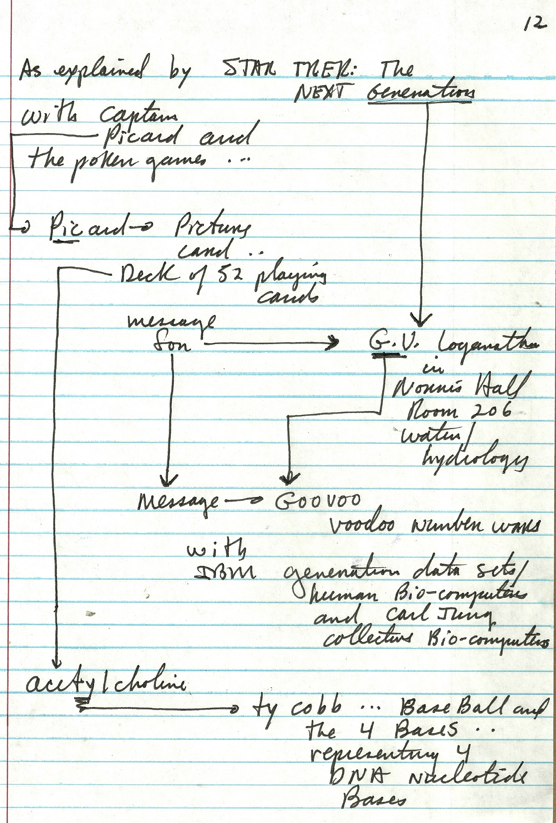 12
As explained by STAR TREK: The
NEXT Generation
with Captain
Picard and
the poker games ...
Picard → Picture
card ..
Deck of 52 playing
cards
message
for → G.V. Loganathan
in
Norris Hall
Room 206
water/
hydrology
Message → GOOVOO
voodoo number waves
with
IBM generation data sets/
human Bio-computers
and Carl Jung
collective Bio-computers
acetylcholine
ty cobb ... BaseBall and
the 4 Bases ..
representing 4
DNA Nucleotide
Bases